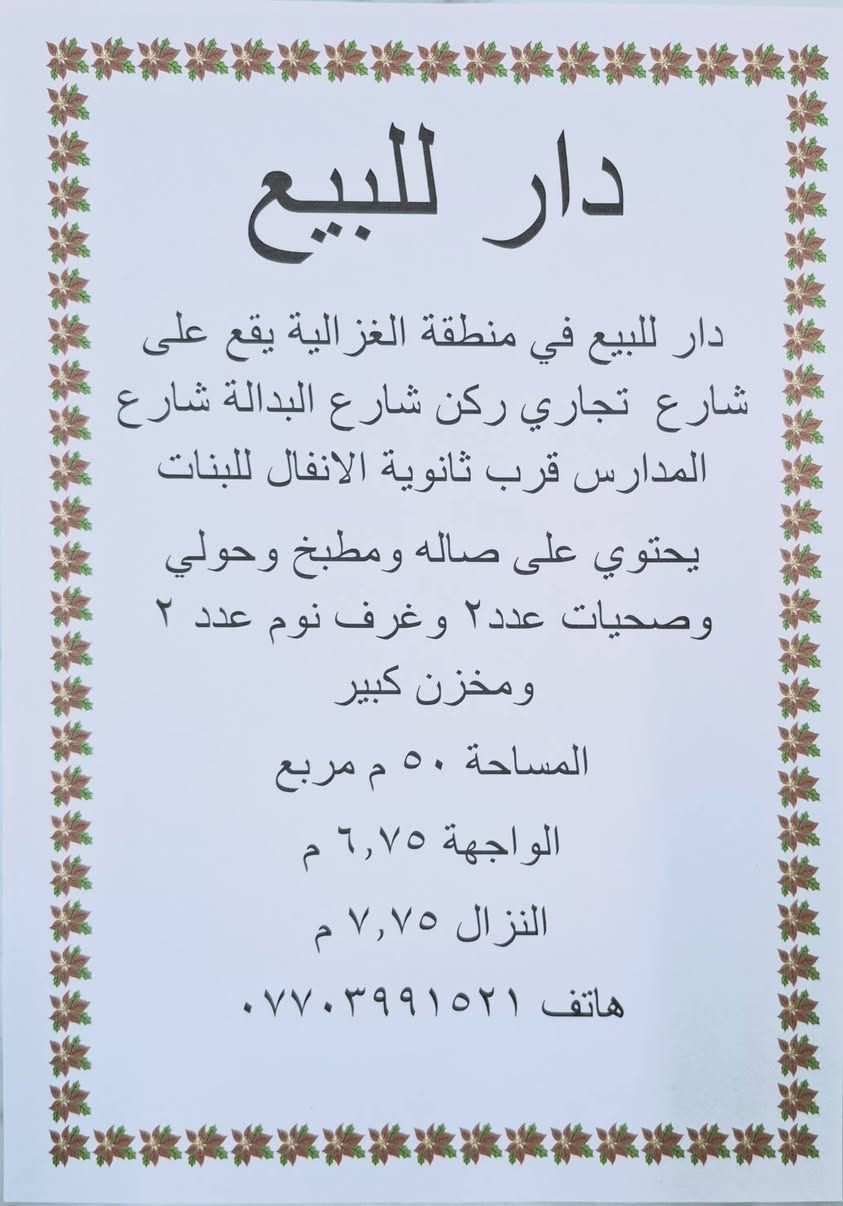 دار للبيع
دار للبيع في منطقة الغزالية يقع على
شارع تجاري ركن شارع البدالة شارع
المدارس قرب ثانوية الانفال للبنات
يحتوي على صاله ومطبخ وحولي
وصحيات عدد٢ وغرف نوم عدد ٢
ومخزن كبير
المساحة ٥٠ م مربع
الواجهة ٦,٧٥ م
النزال ٧,٧٥ م
هاتف ٠٧٧٠٣٩٩١٥٢١